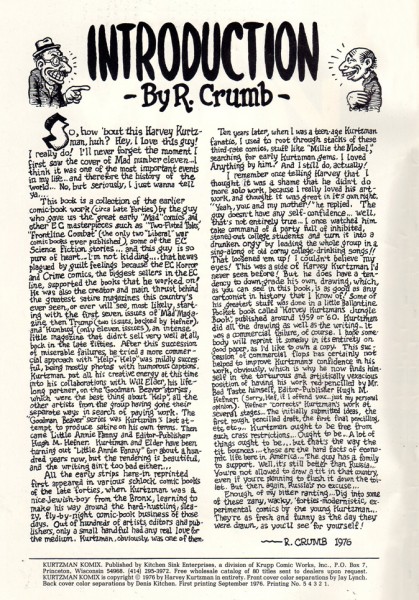 INTRODUCTION
- By R. Crumb -
So, how 'bout this Harvey Kurtz-
man, huh? Hey, I love this guy!
I really do! I'll never forget the moment I
first saw the cover of Mad number eleven...I
think it was one of the most important events
in my life...and therefore the history of the
world... No, but seriously, I just wanna tell
ya...
This book is a collection of the earlier
comic-book work (circa late forties) by the guy
who gave us the great early "Mad" comics, and
other EC masterpieces such as "Two-Fisted Tales,"
"Frontline Combat" (the only two "liberal" war
comic books ever published), some of the EC
Science Fiction stories... and this guy is so
pure of heart...I'm not kidding...that he was
plagued by guilt feelings because the EC Horror
and Crime comics, the biggest sellers in the EC
line, supported the books that he worked on!
He was also the creator and main thrust behind
the greatest satire magazines this country's
ever seen, or ever will see, most likely, start-
ing with the first seven issues of Mad Maga-
zine, then Trump (two issues, backed by Hefner),
and Humbug (only eleven issues), an intense
little magazine that didn't sell very well at all,
back in the late fifties. After this succession
of miserable failures, he tried a more commer-
cial approach with "Help". "Help" was mildly success-
ful, being mostly photos with humorous captions.
Kurtzman put all his creative energy at this time
into his collaborations with Will Elder, his life-
long partner, on the "Goodman Beaver" stories,
which were the best thing about "Help", all the
other artists from the group having gone their
separate ways in search of paying work. The
Goodman Beaver series was Kurtzman's last at-
tempt to produce satire on his own terms. Then
came Little Annie Fanny and Editor-Publisher
Hugh M. Hefner. Kurtzman and Elder have been
turning out "Little Annie Fanny" for about a hun-
dred years now, but the rendering is beautiful,
and the writing ain't too bad either...
All the early strips here-in reprinted
first appeared in various schlock comic books
of the late forties, when Kurtzman was a
nice Jewish boy from the Bronx, learning to
make his way around the hard-hustling, slea-
zy, fly-by-night comic-book business of those
days. Out of hundreds of artists, editors and pub-
lishers, only a small handful had any real love for
the medium. Kurtzman, obviously, was one of them
Ten years later, when I was a teen-age Kurtzman
fanatic, I used to root through stacks of these
third-rate comics, stuff like "Millie the Model,"
searching for early Kurtzman gems. I loved
Anything by him! And I still do, actually!
I remember once telling Harvey that I
thought it was a shame that he didn't do
more solo work, because I really loved his art-
work, and thought it was great in it's own right.
"Yeah, you and my mother!" he replied. The
guy doesn't have any self-confidence... well,
that's not entirely true... I once watched him
take command of a party full of inhibited,
stoned-out college students, and turn it into a
drunken orgy by leading the whole group in a
sing-along of old corny college-drinking songs!!
That loosened 'em up! I couldn't believe my
eyes! This was a side of Harvey Kurtzman I'd
never seen before! But he does have a ten-
dency to down-grade his own drawing, which,
as you can see in this book, is as good as any
cartoonist in history that I know of! Some of
his greatest stuff was done in a little Ballantine
Pocket book called "Harvey Kurtzman's Jungle
Book," published around 1959 or 60. Kurtzman
did all the drawing as well as the writing. It
was a commercial failure, of course. I hope some-
body will reprint it someday in its entirety on
good paper, as I'd like to own a copy. This suc-
cession of commercial flops has certainly not
helped to improve Kurtzman's confidence in his
work, obviously, which is why he now finds him-
self in the torturous and artistically vexacious
position of having his work red-pencilled by Mr.
Bad Taste himself, Editor-Publisher Hugh M.
Hefner. (Sorry, Hef, if I offend you...just my personal
opinion). Hefner "corrects" Kurtzman's work at
several stages... The initially submitted ideas, the
first rough pencilled draft, the first final pencilling,
etc., etc... Kurtzman ought to be free from
such crass restrictions... Ought to be...A lot of
things ought to be... but that's the way the
tit bounces...those are the hard facts of econo-
mic life here in America... The guy has a family
to support. Well, it's still better than Russia...
You're not allowed to draw a tit in that country,
even if you're planning to flush it down the toi-
let. But then again, Russia's no excuse...
Enough of my bitter ranting...Dig into some
of these zany, wacky, forties-modernistic, ex-
perimental comics by the young Kurtzman...
They're as fresh and funny as the day they
were drawn, as you'll see for yourself!
—R. CRUMB 1976
KURTZMAN KOMIX. Published by Kitchen Sink Enterprises, a division of Krupp Comic Works, Inc., P.O. Box 7,
Princeton, Wisconsin 54968. (414) 295-3972. Free wholesale catalog of 80 titles sent to dealers upon request.
KURTZMAN KOMIX is copyright © 1976 by Harvey Kurtzman in entirety. Front cover color separations by Jay Lynch.
Back cover color separations by Denis Kitchen. First printing September 1976. Printing No. 5 4 3 2 1.